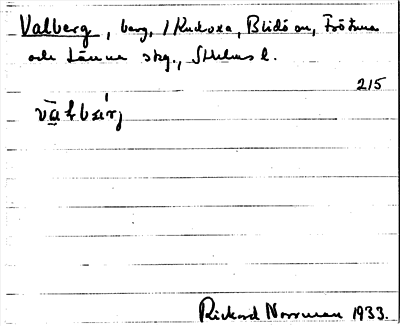 Valberg, berg, / Kudoxa, Blidö sn, Frötuna
och Länna skg., Sthlms l.
215
Rickard Norrman 1933.